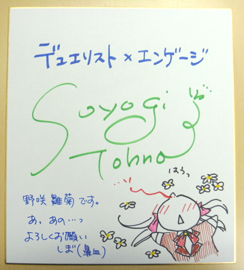 デュエリスト×エンゲージ
Soyogi
Tohno
はうっ
野咲雛菊です。
あ、あの…っ
よろしくお願い
しば(鼻血)